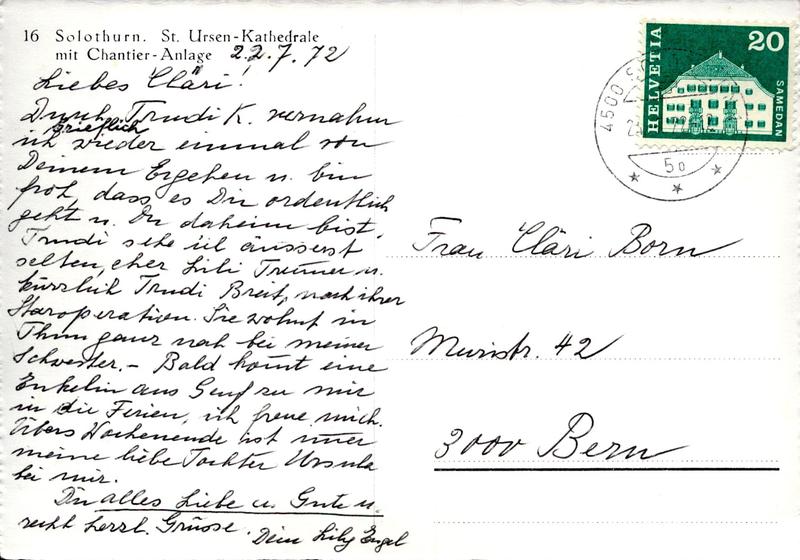 16 Solothurn. St. Ursen-Kathedrale
mit Chantier-Anlage 22.7.72
Liebes Cläri!
Durch Trudi K. vernahm
brieflich
ich wieder einmal von
Deinem Ergehen u. bin
froh, dass es Dir ordentlich
geht u. Du daheim bist.
Trudi sehe ich äusserst
selten, eher Lili Trümer u.
kürzlich Trudi Breit, nach ihrer
Staroperation. Sie wohnt in
Thun ganz nah bei meiner
Schwester. – Bald kommt eine
Enkelin aus Genf zu mir
in die Ferien, ich freue mich.
Übers Wochenende ist immer
meine liebe Tochter Ursula
bei mir.
Dir alles Liebe u. Gute u.
recht herzl. Grüsse. Dein Lily Engel
HELVETIA
20
SAMEDAN
4500 SO
50
Frau Cläri Born
Muristr. 42
3000 Bern